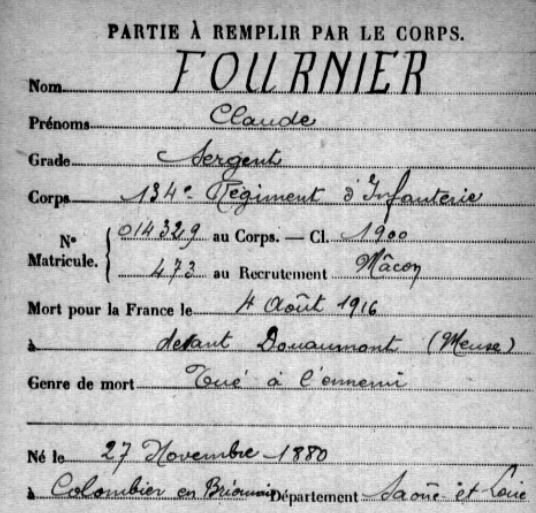 PARTIE À REMPLIR PAR LE CORPS.
Nom FOURNIER
Prénoms Claude
Grade Sergent
Corps 134e Régiment d'Infanterie
N° Matricule. { 014329 au Corps. — Cl. 1900
473 au Recrutement Mâcon
Mort pour la France le 4 Août 1916
à devant Douaumont (Meuse)
Genre de mort Tué à l'ennemi
Né le 27 Novembre 1880
à Colombier en Brionnais Département Saône-et-Loire